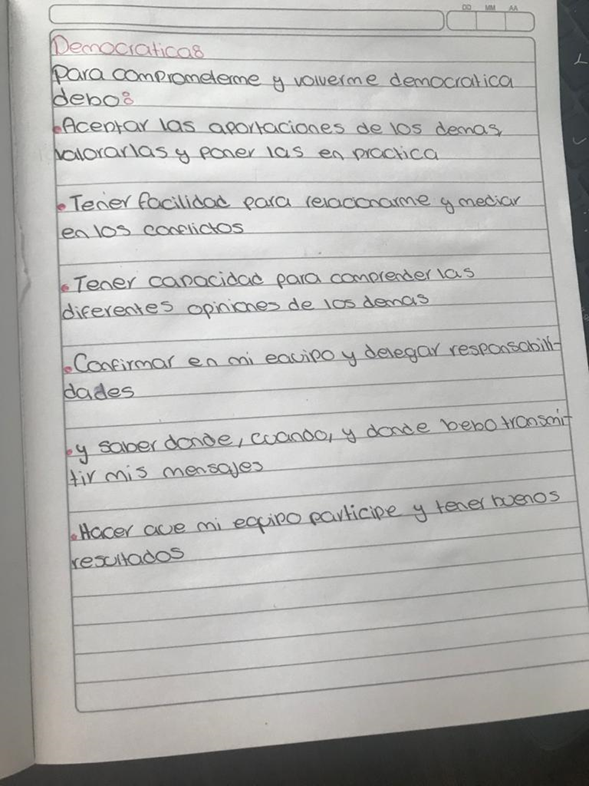 DD MM AA
Democratica:
Para comprometerme y volverme democratica
debo:
•Aceptar las aportaciones de los demas,
valorarlas y poner las en practica
•Tener facilidad para relacionarme y mediar
en los conflictos
•Tener capacidad para comprender las
diferentes opiniones de los demas
•Confirmar en mi equipo y delegar responsabili-
dades
•y saber donde, cuando, y donde bebo transmi-
tir mis mensajes
•Hacer que mi equipo participe y tener buenos
resultados